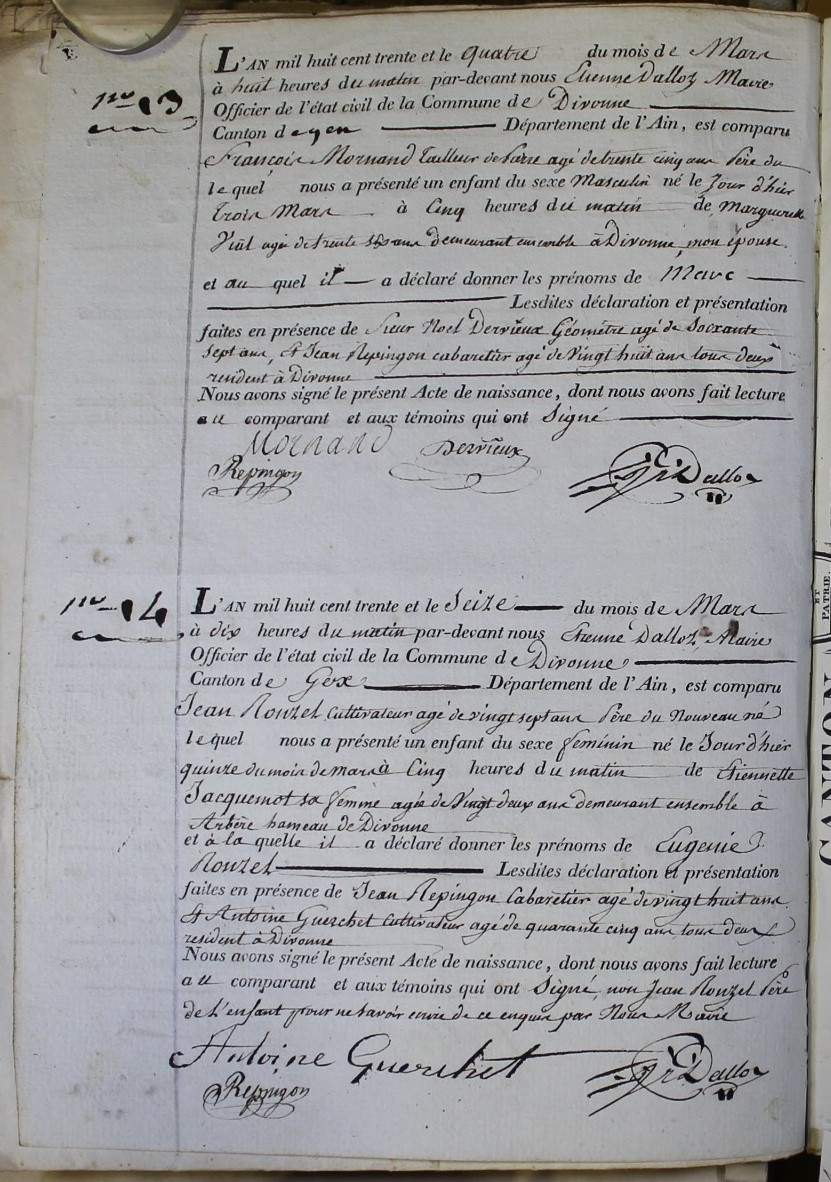 nro 13
L'AN mil huit cent trente et le quatre du mois de Mars
à huit heures du matin par-devant nous Etienne Dalloz Maire
Officier de l'état civil de la Commune de Divonne
Canton de gex Département de l'Ain, est comparu
François Mornand tailleur de agé de trente cinq ans Père du
lequel nous a présenté un enfant du sexe Masculin né le Jour d'hier
trois Mars à Cinq heures du matin de Marguerite
agée de trente ans demeurant ensemble à Divonne, mon épouse.
et au quel il a déclaré donner les prénoms de Marc
Lesdites déclaration et présentation
faites en présence de Sieur Noel Derrieux Géomètre agé de Soixante
sept ans, et Jean Repingon cabaretier agé de Vingt huit ans tous deux
resident à Divonne
Nous avons signé le présent Acte de naissance, dont nous avons fait lecture
au comparant et aux témoins qui ont Signé
Mornand Derrieux
Repingon Dalloz
nro 14
L'AN mil huit cent trente et le Seize du mois de Mars
à dix heures du matin par-devant nous Etienne Dalloz Maire
Officier de l'état civil de la Commune de Divonne
Canton de Gex Département de l'Ain, est comparu
Jean Rouzet Cultivateur agé de vingt sept ans Père du Nouveau né
lequel nous a présenté un enfant du sexe feminin né le Jour d'hier
quinze du mois de mars à Cinq heures du matin de Etiennette
Jacquemot sa femme agée de Vingt deux ans demeurant ensemble à
Arbère hameau de Divonne
et à la quelle il a déclaré donner les prénoms de Eugenie
Rouzet Lesdites déclaration et présentation
faites en présence de Jean Repingon Cabaretier agé de vingt huit ans
et Antoine Guerchet Cultivateur agé de quarante cinq ans tous deux
resident à Divonne
Nous avons signé le présent Acte de naissance, dont nous avons fait lecture
au comparant et aux témoins qui ont Signé, non Jean Rouzet Père
de l'enfant pour ne savoir de ce enquis par Nous Maire
Antoine Guerchet
Repingon Dalloz
ET
PATRIE.
CANTON